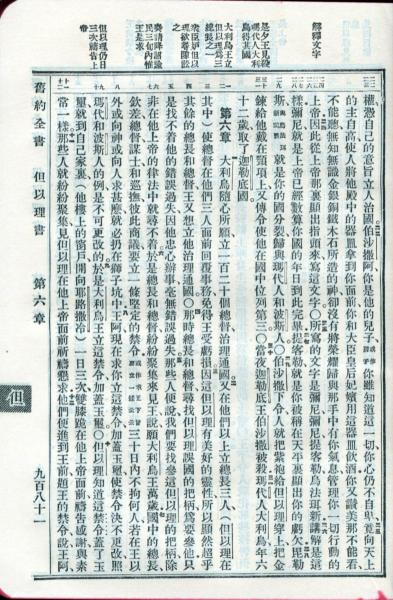 解釋文字
是夕王見殺
瑪代人大利
烏得其國
大利烏王立
但以理爲三
總長之一
王是求
但以理仍日
三次禱告上
帝
權憑自己的意旨立人治國伯沙撒阿你是他的兒子你雖知道這一切你心仍不自卑竟向天上
的主自高使人將他殿中的器皿拿到你面前你和大臣皇后妃嬪用這器皿飲酒你又讚美那不能看
不能聽無知識金銀銅鐵木石所造的神卻沒有將榮耀歸與那手中有你氣息管理你一切行動的
上帝因此從上帝那裏顯出指頭來寫這文字○所寫的文字是彌尼彌尼提客勒烏法珥新講解是這
樣彌尼就是上帝已經數算你國的年日到此完畢提客勒就是你被稱在天平裏顯出你的虧欠毘勒
斯就是你的國分裂歸與瑪代人和波斯人○伯沙撒下令人就把紫袍給但以理穿上把金
鍊給戴在頸項上又傳令使他在國中位列第三○當夜迦勒底王伯沙撒被殺瑪代人大利烏年六
十二歲取了迦勒底國
第六章 大利烏隨心所願立一百二十個總督治理通國又在他們以上立總長三人(但以理在
其中)使總督在他們三人面前回覆事務免得王受虧損因這但以理有美好的靈性所以顯然超乎
其餘的總長和總督王又想立他治理通國○那時總長和總督尋找但以理誤國的把柄爲要參他只
是找不着他的錯誤過失因他忠心辦事毫無錯誤過失那些人便說我們要找參這但以理的把柄除
非在他上帝的律法中就尋不着於是總長和總督紛紛聚集來見王說願大利烏王萬歲國中的總長
欽差總督謀士和巡撫彼此商議要立一條堅定的禁令三十日內不拘何人若在王以
外或向神或向人求甚麽就必扔在獅子坑中王阿現在求你立這禁令加蓋玉璽使禁令決不更改照
瑪代和波斯人的例是不可更改的於是大利烏王立這禁令加蓋玉璽○但以理知道這禁令蓋了玉
璽就到自己家裏(他樓上的窗戶開向耶路撒冷)一日三次雙膝跪在他上帝面前禱告感謝與素
常一樣那些人就紛紛聚集見但以理在他上帝面前祈禱懇求他們便進到王前題王的禁令說王阿
舊約全書 但以理書 第六章
但
九百八十一